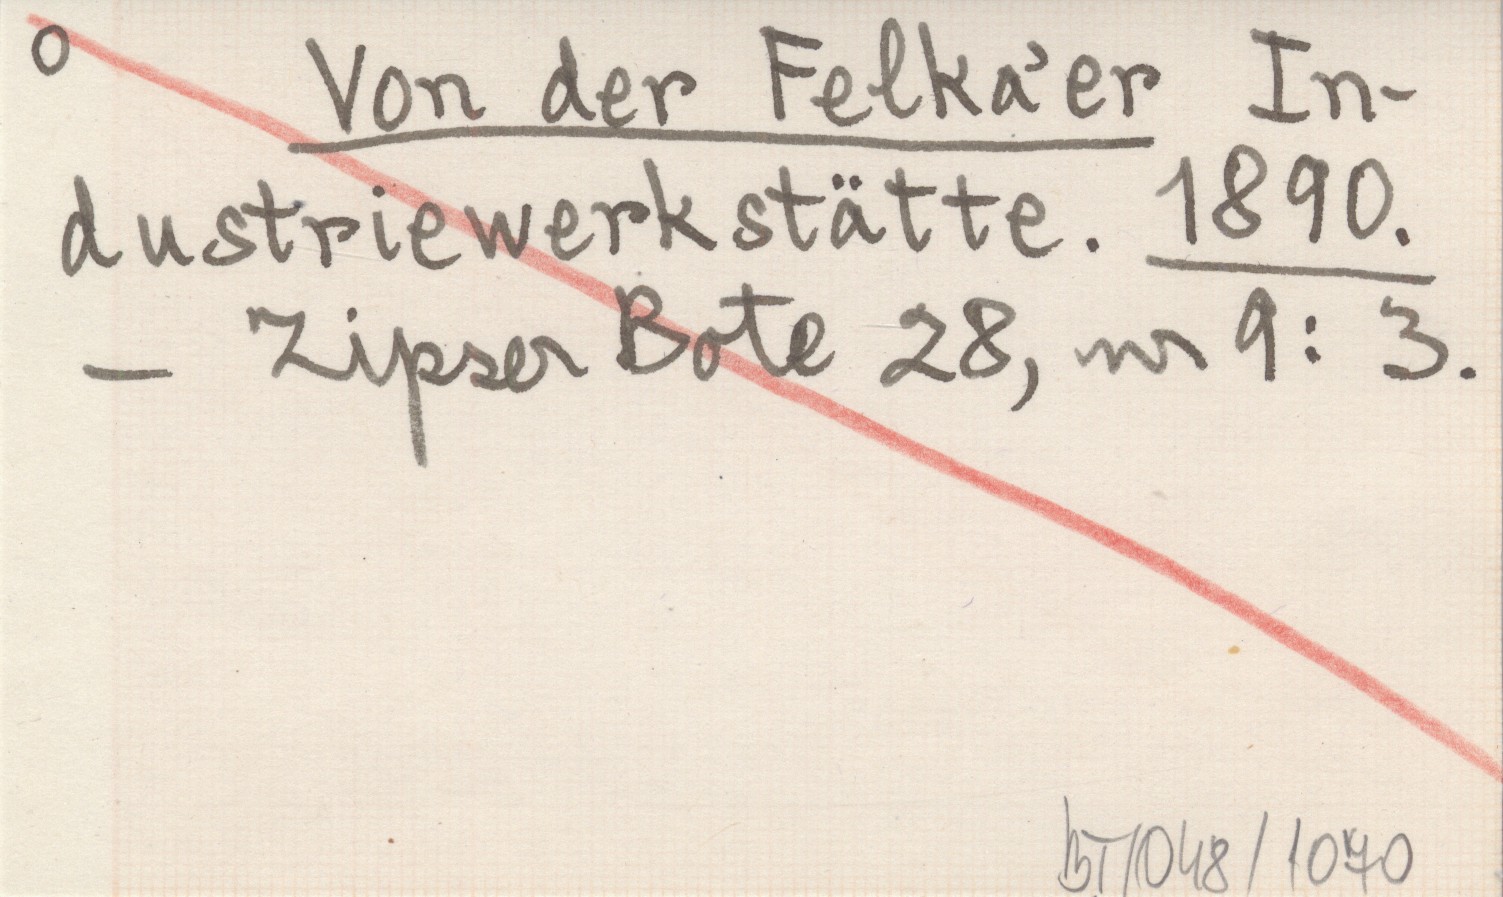 o Von der Felka'er In-
dustriewerkstätte. 1890.
— Zipser Bote 28, nr 9: 3.
BT/048/1070